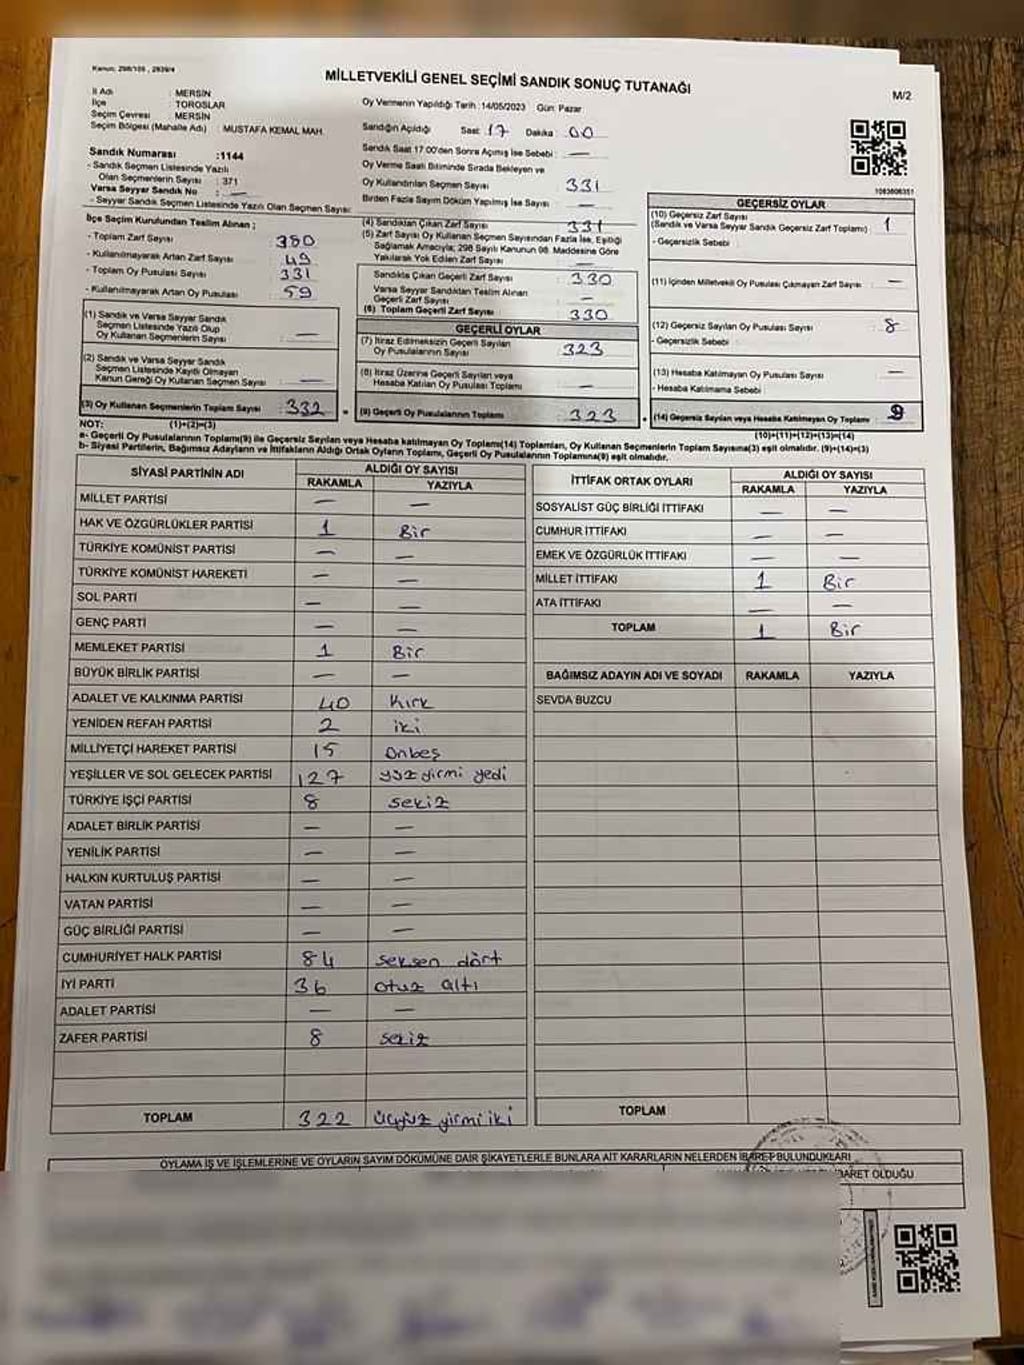 Kanun: 298/105 , 2839/4
MİLLETVEKİLİ GENEL SEÇİMİ SANDIK SONUÇ TUTANAĞI
M/2
İl Adı : MERSİN
İlçe : TOROSLAR
Seçim Çevresi : MERSİN
Seçim Bölgesi (Mahalle Adı) : MUSTAFA KEMAL MAH.
Sandık Numarası :1144
- Sandık Seçmen Listesinde Yazılı
Olan Seçmenlerin Sayısı : 371
Varsa Seyyar Sandık No : —
- Seyyar Sandık Seçmen Listesinde Yazılı Olan Seçmen Sayısı:
Oy Vermenin Yapıldığı Tarih :14/05/2023 Gün: Pazar
Sandığın Açıldığı Saat: 17 Dakika : 00
Sandık Saat 17:00'den Sonra Açımış İse Sebebi : —
Oy Verme Saati Bitiminde Sırada Bekleyen ve
Oy Kullandırılan Seçmen Sayısı : 331
Birden Fazla Sayım Döküm Yapılmış İse Sayısı : —
1063606351
İlçe Seçim Kurulundan Teslim Alınan ;
- Toplam Zarf Sayısı : 380
- Kullanılmayarak Artan Zarf Sayısı : 49
- Toplam Oy Pusulası Sayısı : 331
- Kullanılmayarak Artan Oy Pusulası : 59
(1) Sandık ve Varsa Seyyar Sandık
Seçmen Listesinde Yazılı Olup
Oy Kullanan Seçmenlerin Sayısı : —
(2) Sandık ve Varsa Seyyar Sandık
Seçmen Listesinde Kayıtlı Olmayan
Kanun Gereği Oy Kullanan Seçmen Sayısı : —
(3) Oy Kullanan Seçmenlerin Toplam Sayısı : 332
(4) Sandıktan Çıkan Zarf Sayısı : 331
(5) Zarf Sayısı Oy Kullanan Seçmen Sayısından Fazla İse, Eşitliği
Sağlamak Amacıyla; 298 Sayılı Kanunun 98. Maddesine Göre
Yakılarak Yok Edilen Zarf Sayısı : —
Sandıkta Çıkan Geçerli Zarf Sayısı : 330
Varsa Seyyar Sandıktan Teslim Alınan
Geçerli Zarf Sayısı : —
(6) Toplam Geçerli Zarf Sayısı : 330
GEÇERLİ OYLAR
(7) İtiraz Edilmeksizin Geçerli Sayılan
Oy Pusulalarının Sayısı : 323
(8) İtiraz Üzerine Geçerli Sayılan veya
Hesaba Katılan Oy Pusulası Toplamı : —
(9) Geçerli Oy Pusulalarının Toplamı : 323
GEÇERSİZ OYLAR
(10) Geçersiz Zarf Sayısı
(Sandık ve Varsa Seyyar Sandık Geçersiz Zarf Toplamı) : 1
- Geçersizlik Sebebi :
(11) İçinden Milletvekili Oy Pusulası Çıkmayan Zarf Sayısı : —
(12) Geçersiz Sayılan Oy Pusulası Sayısı : 8
- Geçersizlik Sebebi :
(13) Hesaba Katılmayan Oy Pusulası Sayısı : —
- Hesaba Katılmama Sebebi :
(14) Geçersiz Sayılan veya Hesaba Katılmayan Oy Toplamı : 9
NOT: (1)+(2)=(3)
(10)+(11)+(12)+(13)=(14)
a- Geçerli Oy Pusulalarının Toplamı(9) ile Geçersiz Sayılan veya Hesaba katılmayan Oy Toplamı(14) Toplamları, Oy Kullanan Seçmenlerin Toplam Sayısına(3) eşit olmalıdır. (9)+(14)=(3)
b- Siyasi Partilerin, Bağımsız Adayların ve İttifakların Aldığı Ortak Oyların Toplamı, Geçerli Oy Pusulalarının Toplamına(9) eşit olmalıdır.
SİYASİ PARTİNİN ADI ALDIĞI OY SAYISI
RAKAMLA YAZIYLA
MİLLET PARTİSİ — —
HAK VE ÖZGÜRLÜKLER PARTİSİ 1 Bir
TÜRKİYE KOMÜNİST PARTİSİ — —
TÜRKİYE KOMÜNİST HAREKETİ — —
SOL PARTİ — —
GENÇ PARTİ — —
MEMLEKET PARTİSİ 1 Bir
BÜYÜK BİRLİK PARTİSİ — —
ADALET VE KALKINMA PARTİSİ 40 Kırk
YENİDEN REFAH PARTİSİ 2 iki
MİLLİYETÇİ HAREKET PARTİSİ 15 onbeş
YEŞİLLER VE SOL GELECEK PARTİSİ 127 yüz yirmi yedi
TÜRKİYE İŞÇİ PARTİSİ 8 sekiz
ADALET BİRLİK PARTİSİ — —
YENİLİK PARTİSİ — —
HALKIN KURTULUŞ PARTİSİ — —
VATAN PARTİSİ — —
GÜÇ BİRLİĞİ PARTİSİ — —
CUMHURİYET HALK PARTİSİ 84 seksen dört
İYİ PARTİ 36 otuz altı
ADALET PARTİSİ — —
ZAFER PARTİSİ 8 sekiz
TOPLAM 322 üçyüz yirmi iki
İTTİFAK ORTAK OYLARI ALDIĞI OY SAYISI
RAKAMLA YAZIYLA
SOSYALİST GÜÇ BİRLİĞİ İTTİFAKI — —
CUMHUR İTTİFAKI — —
EMEK VE ÖZGÜRLÜK İTTİFAKI — —
MİLLET İTTİFAKI 1 Bir
ATA İTTİFAKI — —
TOPLAM 1 Bir
BAĞIMSIZ ADAYIN ADI VE SOYADI RAKAMLA YAZIYLA
SEVDA BUZCU
TOPLAM
OYLAMA İŞ VE İŞLEMLERİNE VE OYLARIN SAYIM DÖKÜMÜNE DAİR ŞİKAYETLERLE BUNLARA AİT KARARLARIN NELERDEN İBARET BULUNDUKLARI
İBARET OLDUĞU